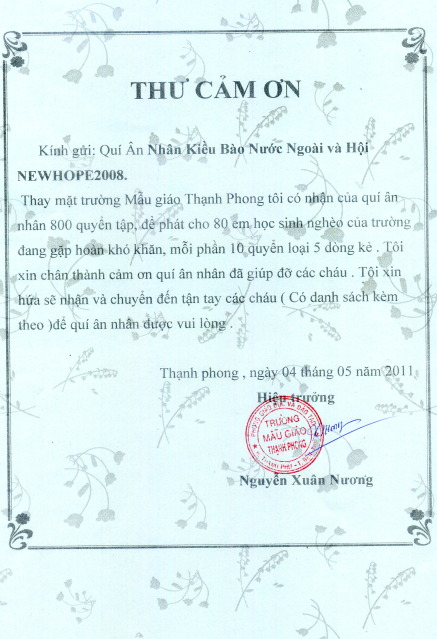 THƯ CẢM ƠN
Kính gửi: Quí Ân Nhân Kiều Bào Nước Ngoài và Hội
NEWHOPE2008.
Thay mặt trường Mẫu giáo Thạnh Phong tôi có nhận của quí ân
nhân 800 quyển tập, để phát cho 80 em học sinh nghèo của trường
đang gặp hoàn khó khăn, mỗi phần 10 quyển loại 5 dòng kẻ . Tôi
xin chân thành cảm ơn quí ân nhân đã giúp đỡ các cháu . Tôi xin
hứa sẽ nhận và chuyển đến tận tay các cháu ( Có danh sách kèm
theo )để quí ân nhân được vui lòng .
Thạnh phong , ngày 04 tháng 05 năm 2011
Hiệu trưởng
TRƯỜNG
MẪU GIÁO
THẠNH PHONG
Nguyễn Xuân Nương